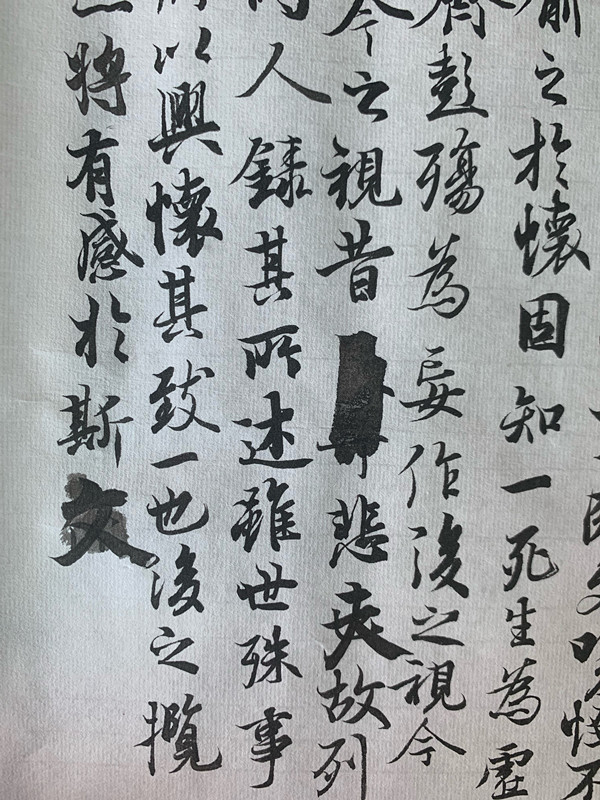 之於懷固知一死生為虛
齊彭殤為妄作後之視今
今之視昔悲夫故列
人錄其所述雖世殊事
以興懷其致一也後之攬
將有感於斯文